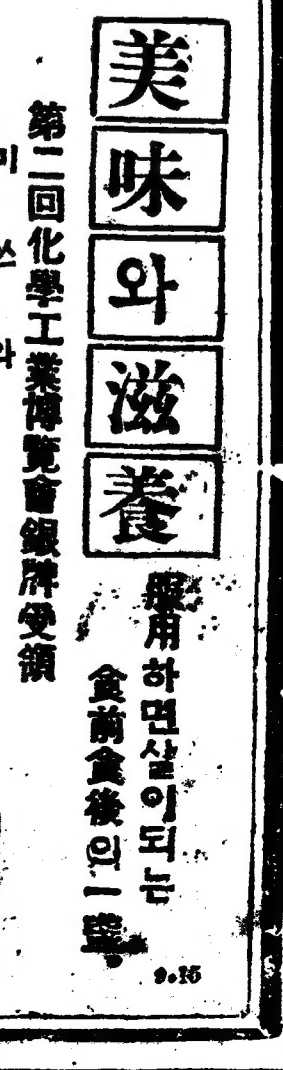 美味와滋養
服用하면살이되는
食前食後의一
第二回化學工業博覽會銀牌受領
9.15